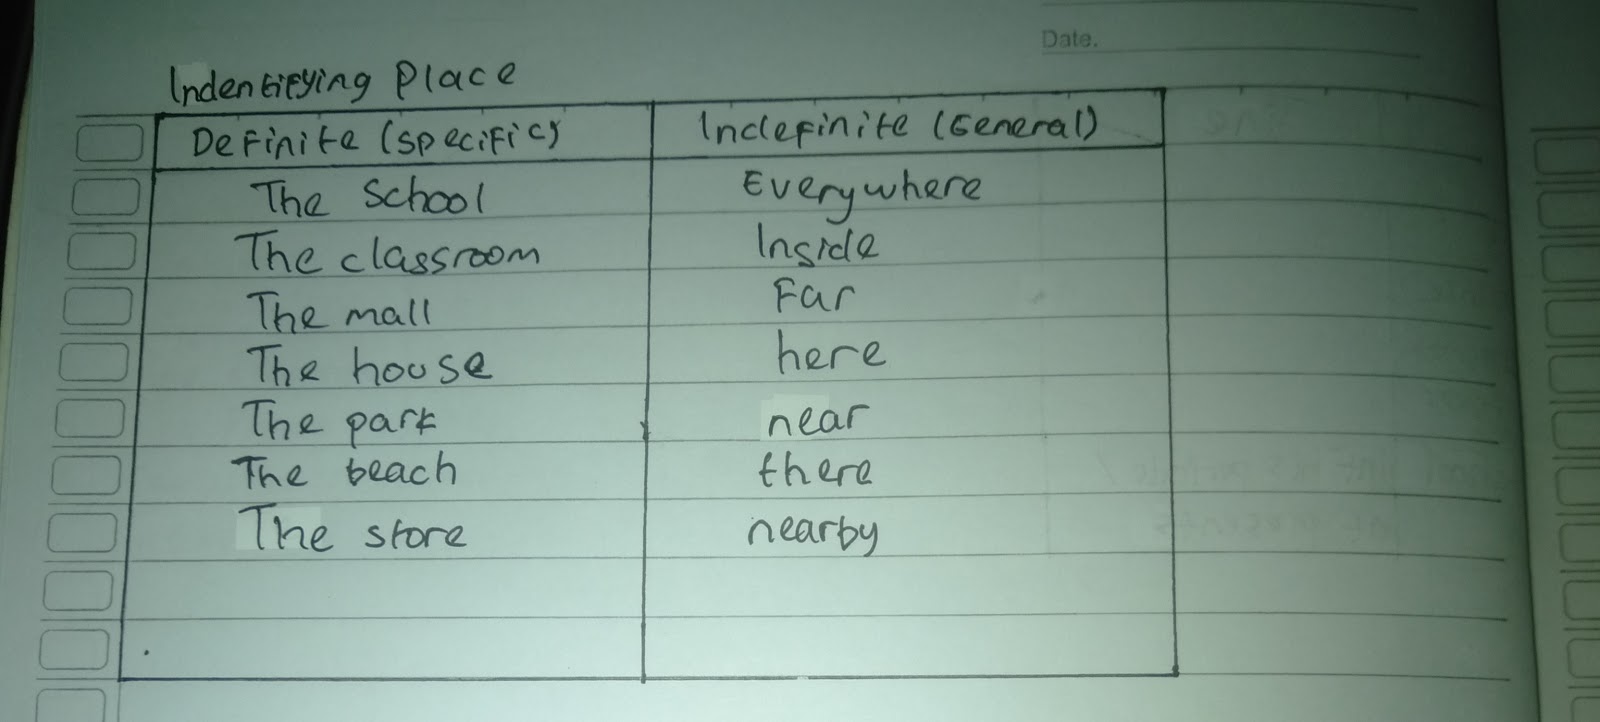 Date.
Indentifying Place
Definite (specific) Indefinite (General)
The School Everywhere
The classroom Inside
The mall Far
The house here
The park near
The beach there
The store nearby